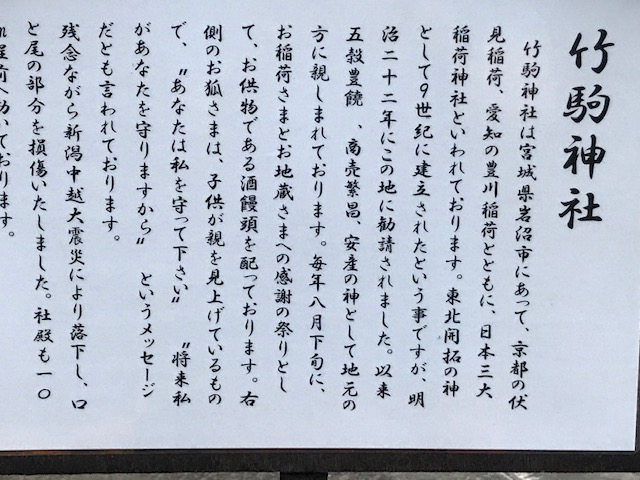 竹駒神社
竹駒神社は宮城県岩沼市にあって、京都の伏
見稲荷、愛知の豊川稲荷とともに、日本三大
稲荷神社といわれております。東北開拓の神
として9世紀に建立されたという事ですが、明
治二十二年にこの地に勧請されました。以来
五穀豊饒、商売繁昌、安産の神として地元の
方に親しまれております。毎年八月下旬に、
お稲荷さまとお地蔵さまへの感謝の祭りとし
て、お供物である酒饅頭を配っております。右
側のお狐さまは、子供が親を見上げているもの
で、"あなたは私を守って下さい" "将来私
があなたを守りますから" というメッセージ
だとも言われております。
残念ながら新潟中越大震災により落下し、口
と尾の部分を損傷いたしました。社殿も一〇
程前へ動いております。